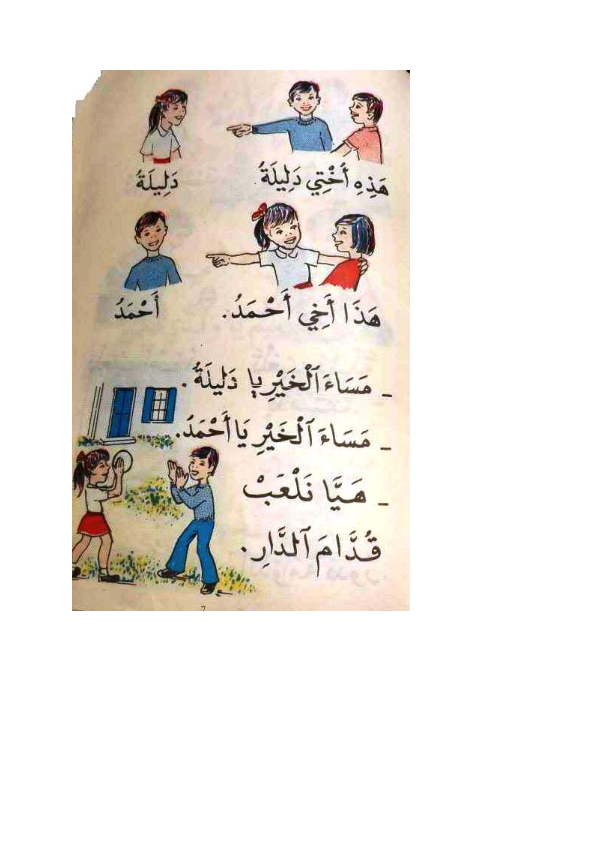 هَذِهِ أُخْتِي دَلِيلَةُ. دَلِيلَةُ
هَذَا أَخِي أَحْمَدُ. أَحْمَدُ
_ مَسَاءَ ٱلْخَيْرِ يَا دَلِيلَةُ.
_ مَسَاءَ ٱلْخَيْرِ يَا أَحْمَدُ.
_ هَيَّا نَلْعَبْ
قُدَّامَ ٱلدَّارِ.
7